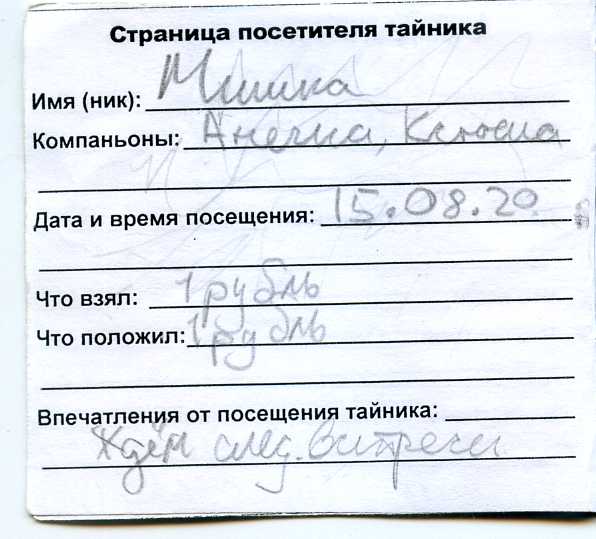 Страница посетителя тайника
Имя (ник): Мишка
Компаньоны: Анечка, Ксюша
Дата и время посещения: 15.08.20
Что взял: 1 рубль
Что положил: 1 рубль
Впечатления от посещения тайника:
Ждём след. встречи